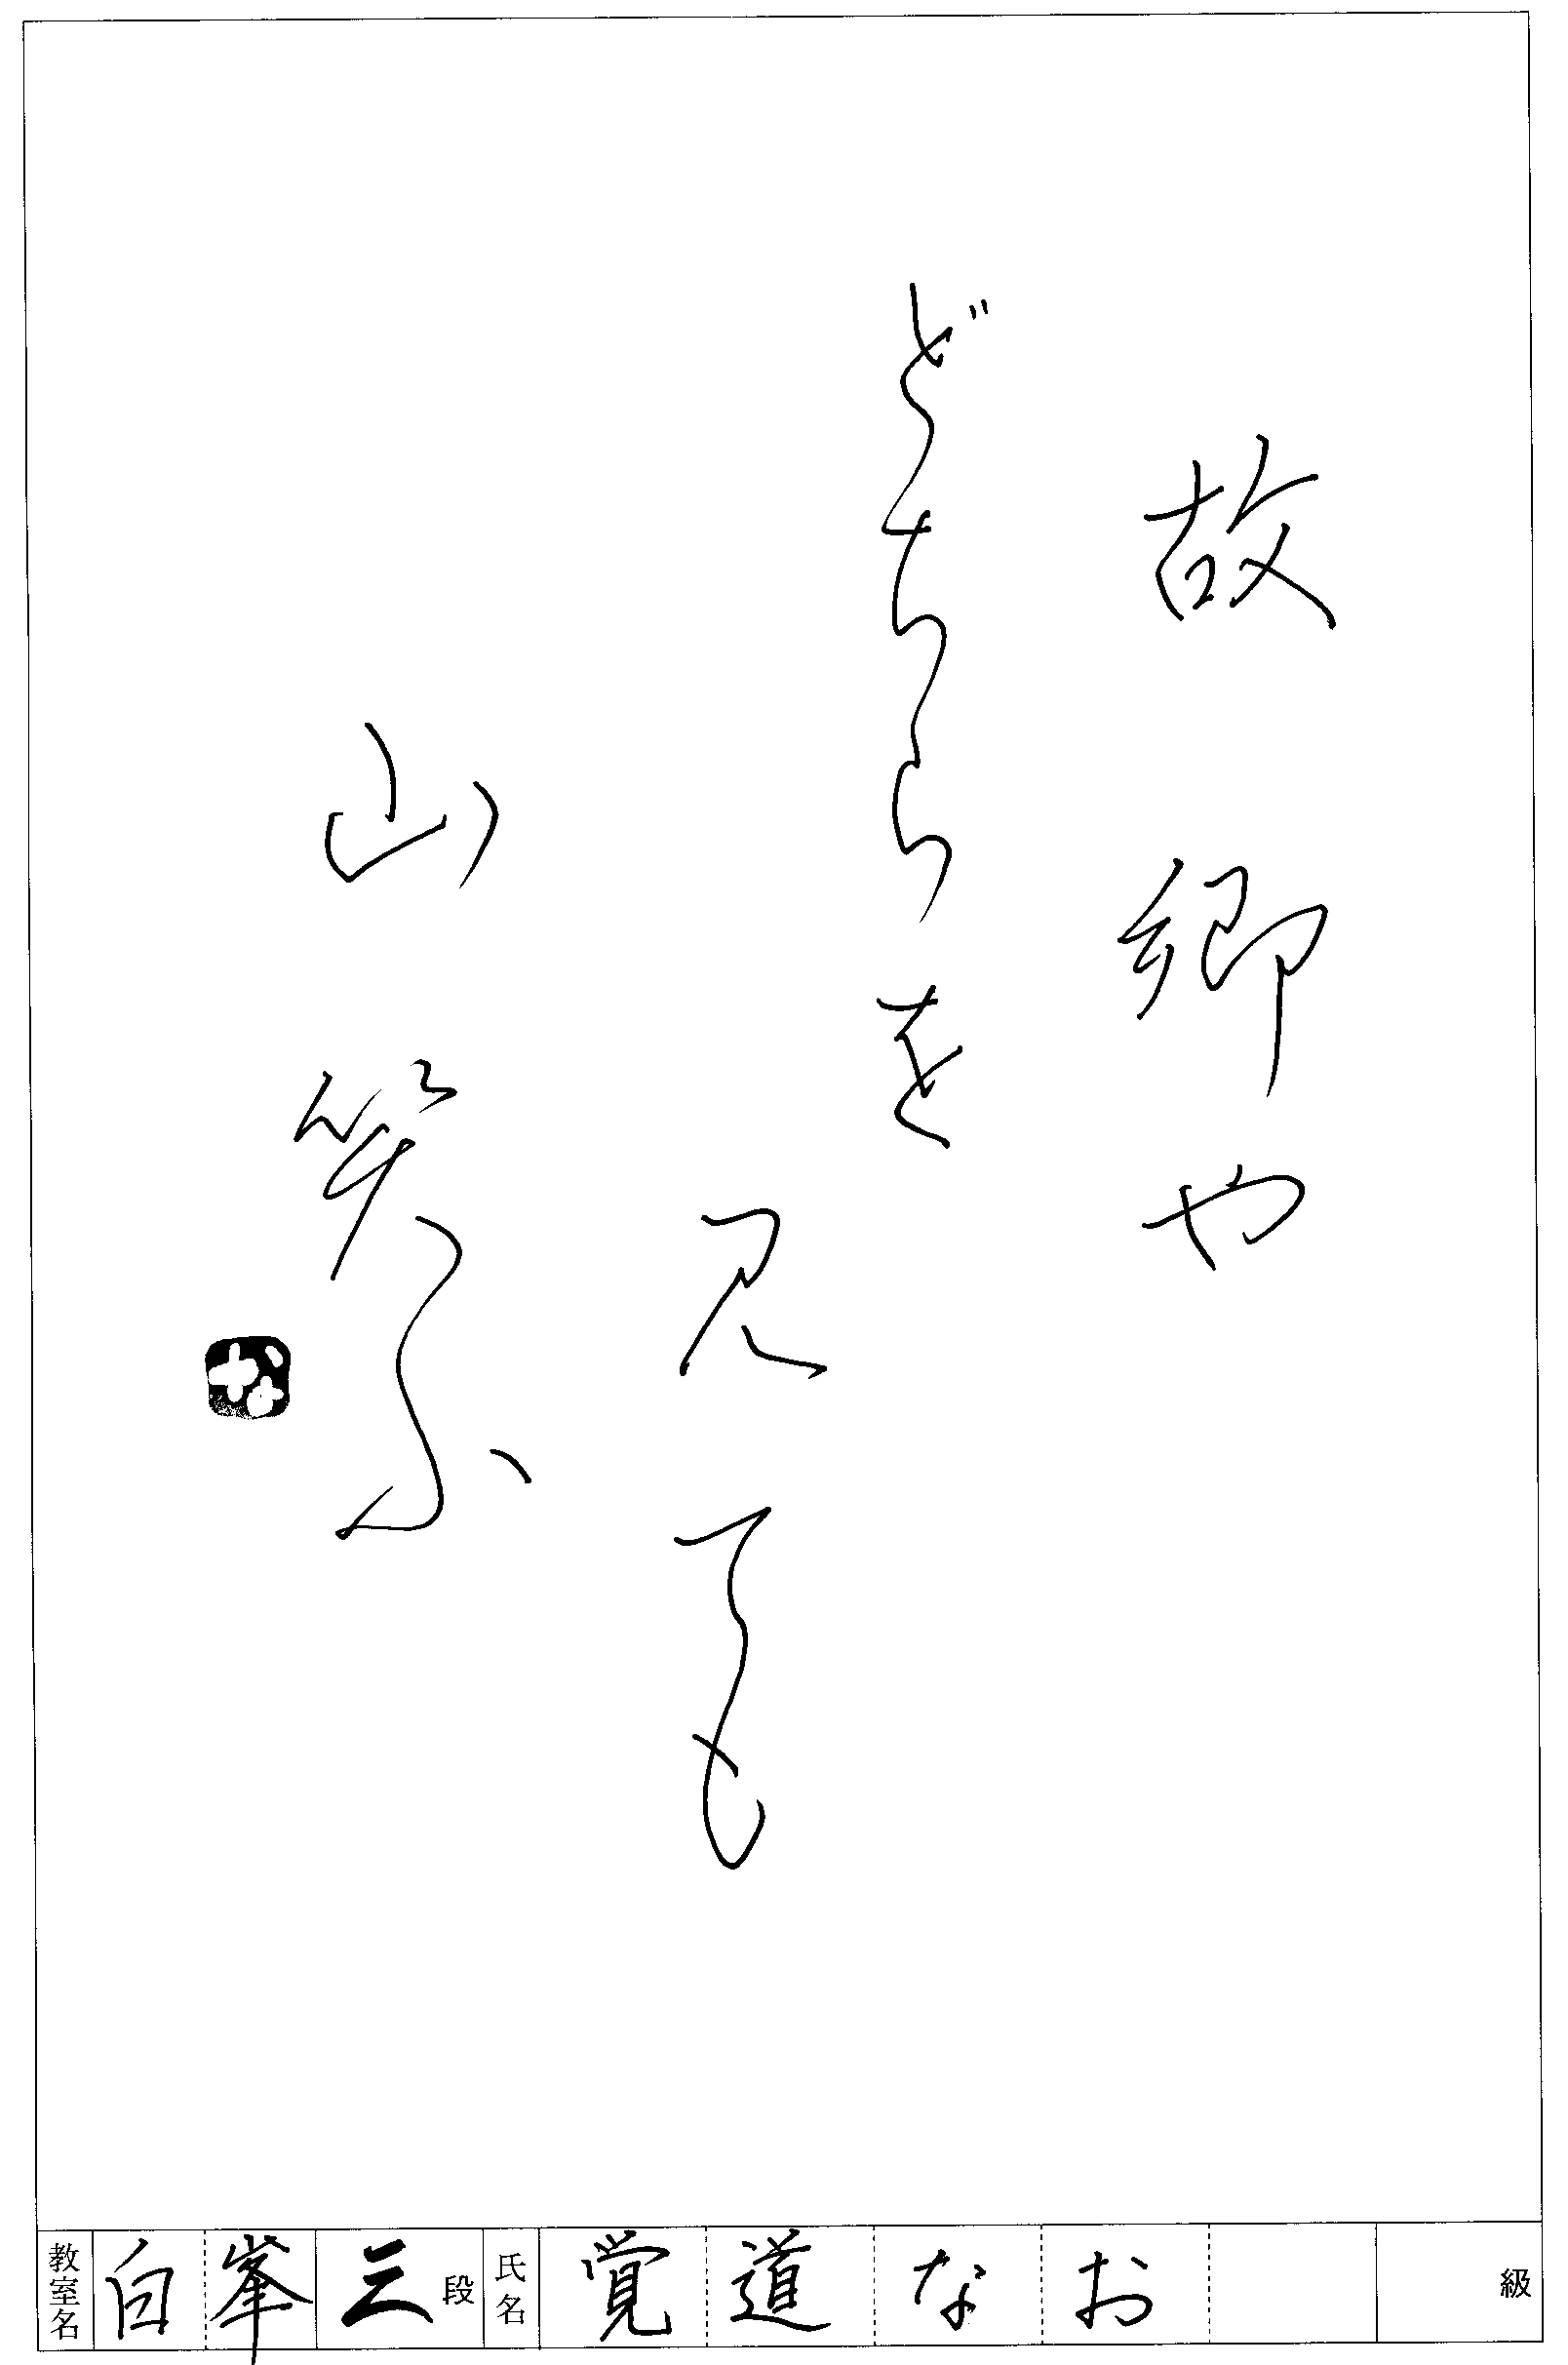 故郷や
どちらを
見ても
山笑ふ
教室名 白峯 三段 氏名 覚道なお 級